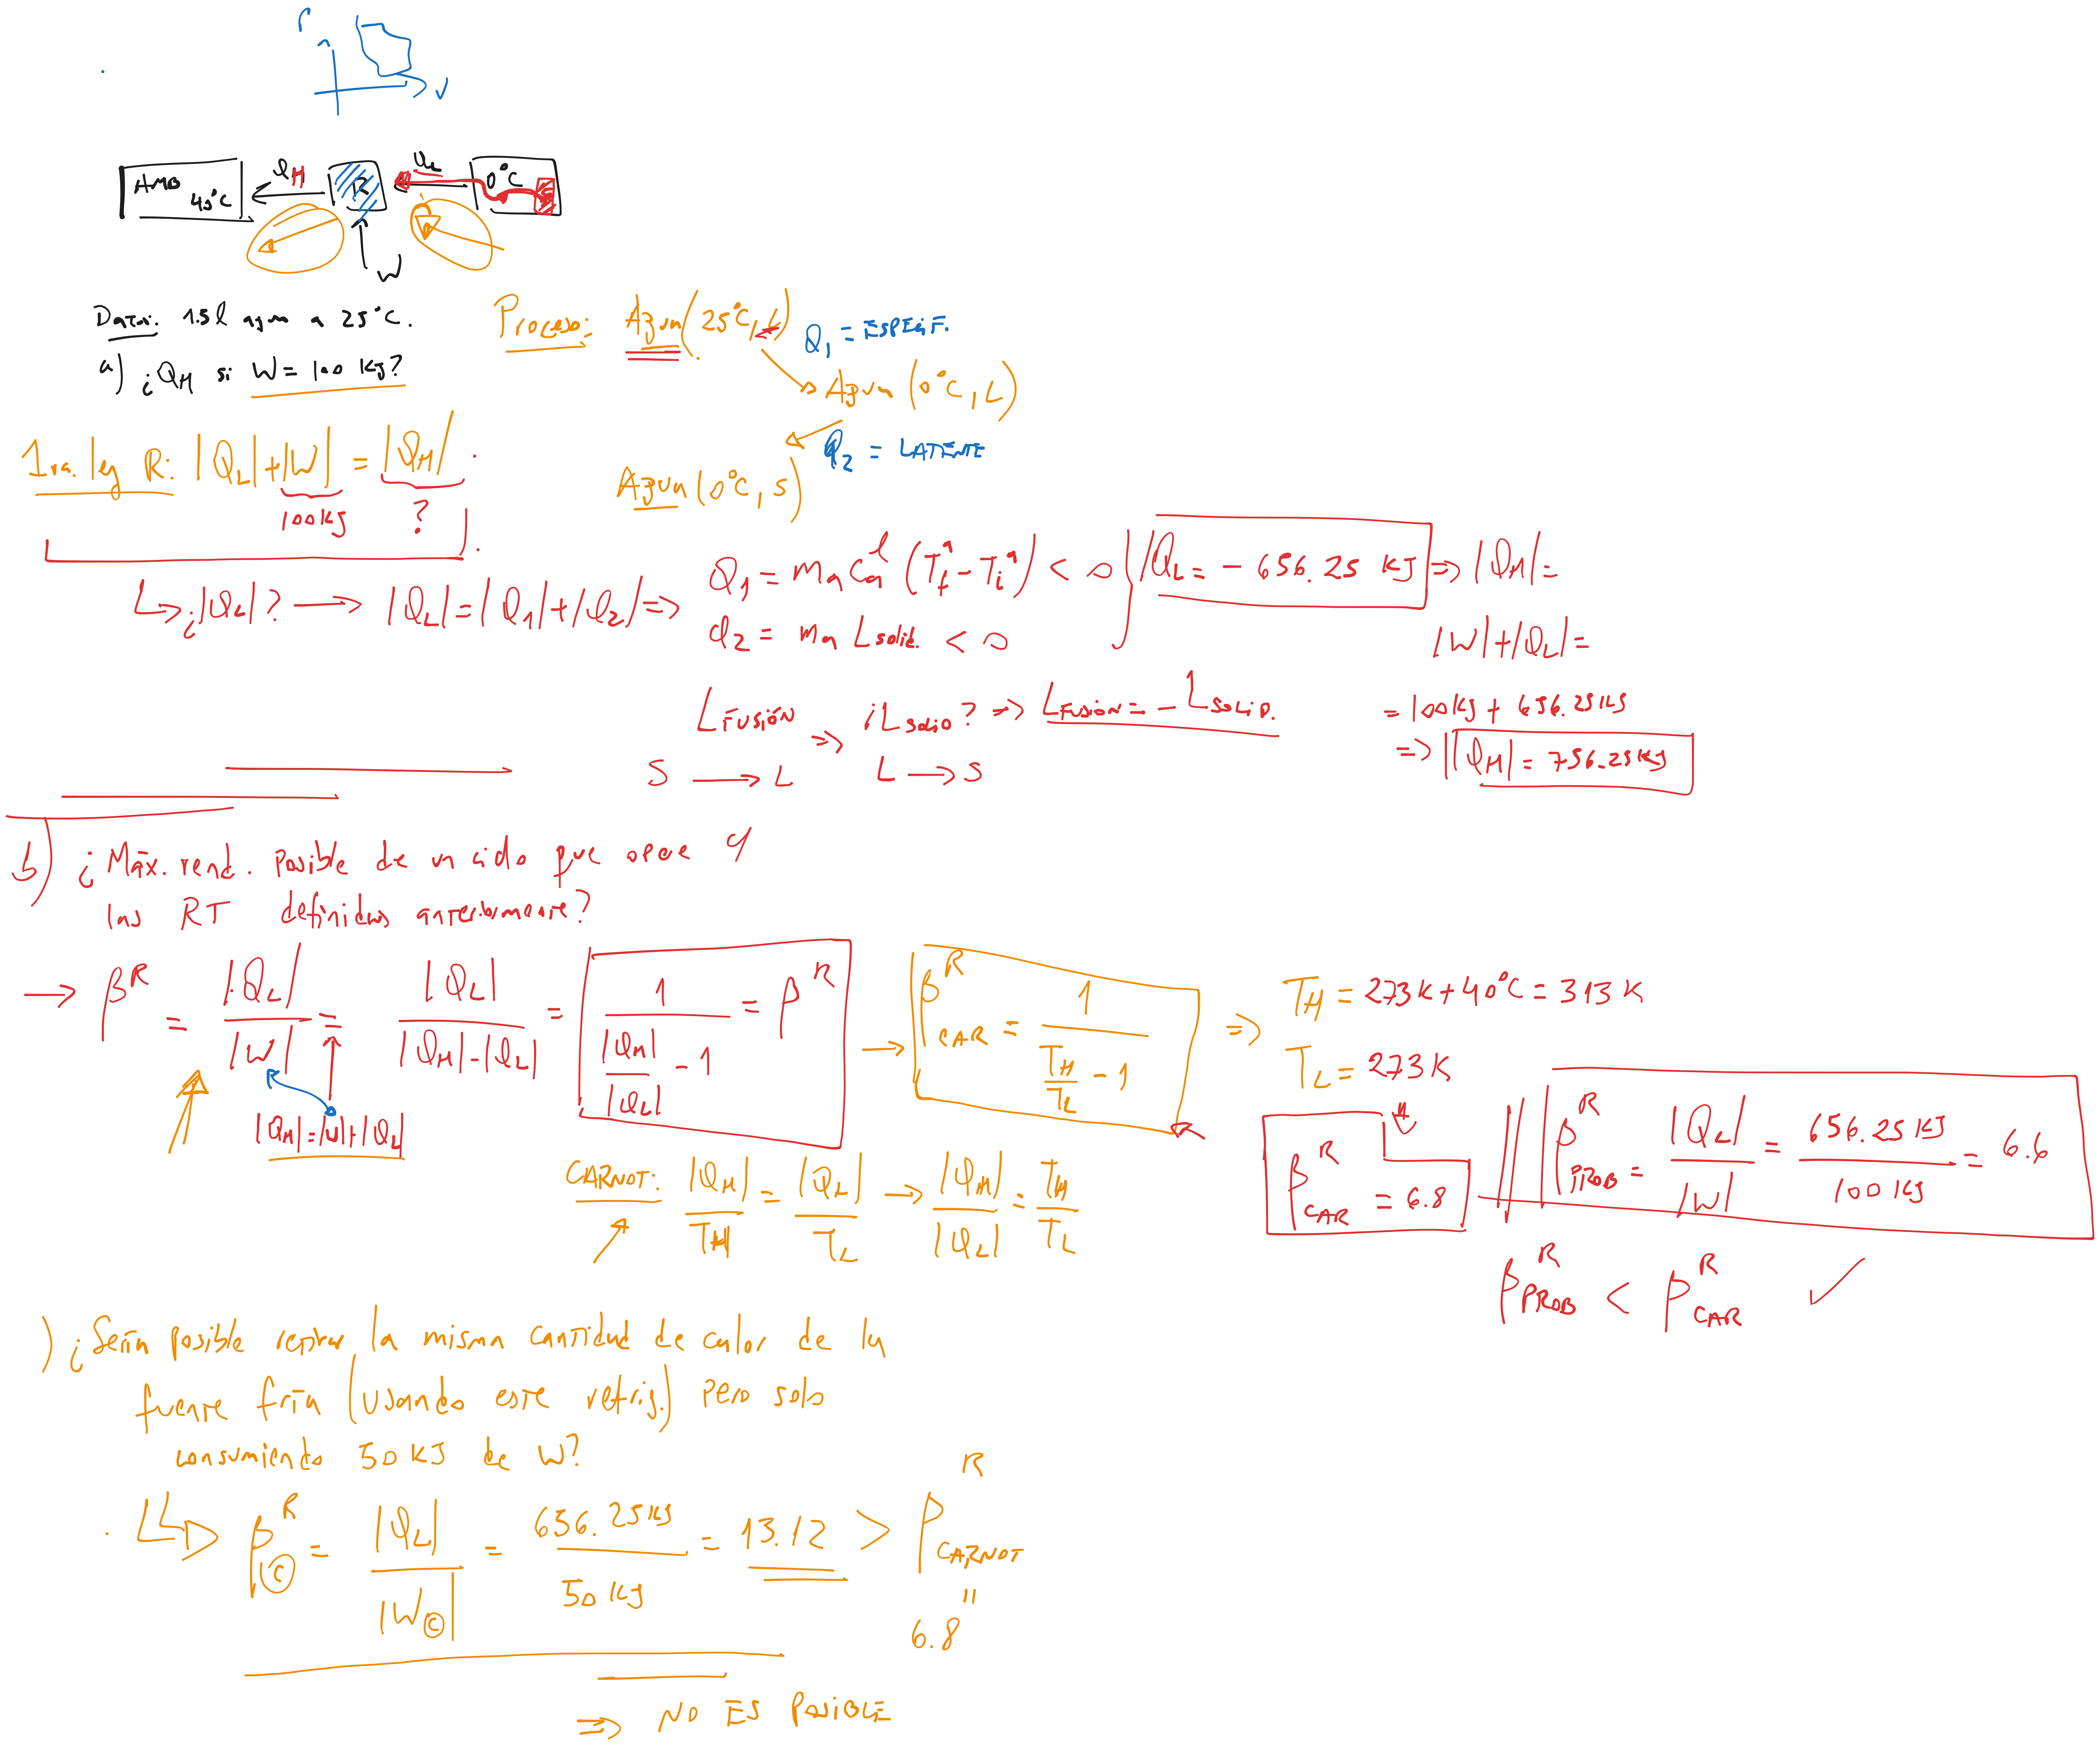 P
V
AMB
40°C
Q_H
R
Q_L
0°C
W
Datos: 1.5 l agua a 25°C.
a) ¿Q_H si W = 100 KJ?
Proceso: Agua (25°C, L)
Q_1 = ESPECIF.
Agua (0°C, L)
Q_2 = LATENTE
Agua (0°C, S)
1ra. ley R: |Q_L| + |W| = |Q_H|
100 KJ ?
↳ ¿|Q_L|? → |Q_L| = |Q_1| + |Q_2| ⇒
Q_1 = m_a C_a^l (T_f^a - T_i^a) < 0
Q_2 = m_a L_solid. < 0
Q_L = - 656.25 KJ ⇒ |Q_H| =
|W| + |Q_L| =
= 100 KJ + 656.25 KJ
⇒ |Q_H| = 756.25 KJ
L_FUSIÓN ⇒ ¿L_SOLID? ⇒ L_FUSIÓN = - L_SOLID.
S → L L → S
b) ¿Máx. rend. posible de un ciclo que opere
las RT definidas anteriormente?
→ β^R = |Q_L| / |W| = |Q_L| / (|Q_H| - |Q_L|) = 1 / (|Q_H| / |Q_L| - 1) = β^R
|Q_H| = |W| + |Q_L|
→ β^R_CAR = 1 / (T_H / T_L - 1) ⇒
T_H = 273 K + 40°C = 313 K
T_L = 273 K
CARNOT: |Q_H| / T_H = |Q_L| / T_L → |Q_H| / |Q_L| = T_H / T_L
β^R_CAR = 6.8
β^R_PROB = |Q_L| / |W| = 656.25 KJ / 100 KJ = 6.6
β^R_PROB < β^R_CAR ✓
) ¿Sería posible retirar la misma cantidad de calor de la
fuente fría (usando este refrig.) pero solo
consumiendo 50 KJ de W?
β^R_© = |Q_L| / |W_©| = 656.25 KJ / 50 KJ = 13.12 > β^R_CARNOT
"
6.8
⇒ NO ES POSIBLE